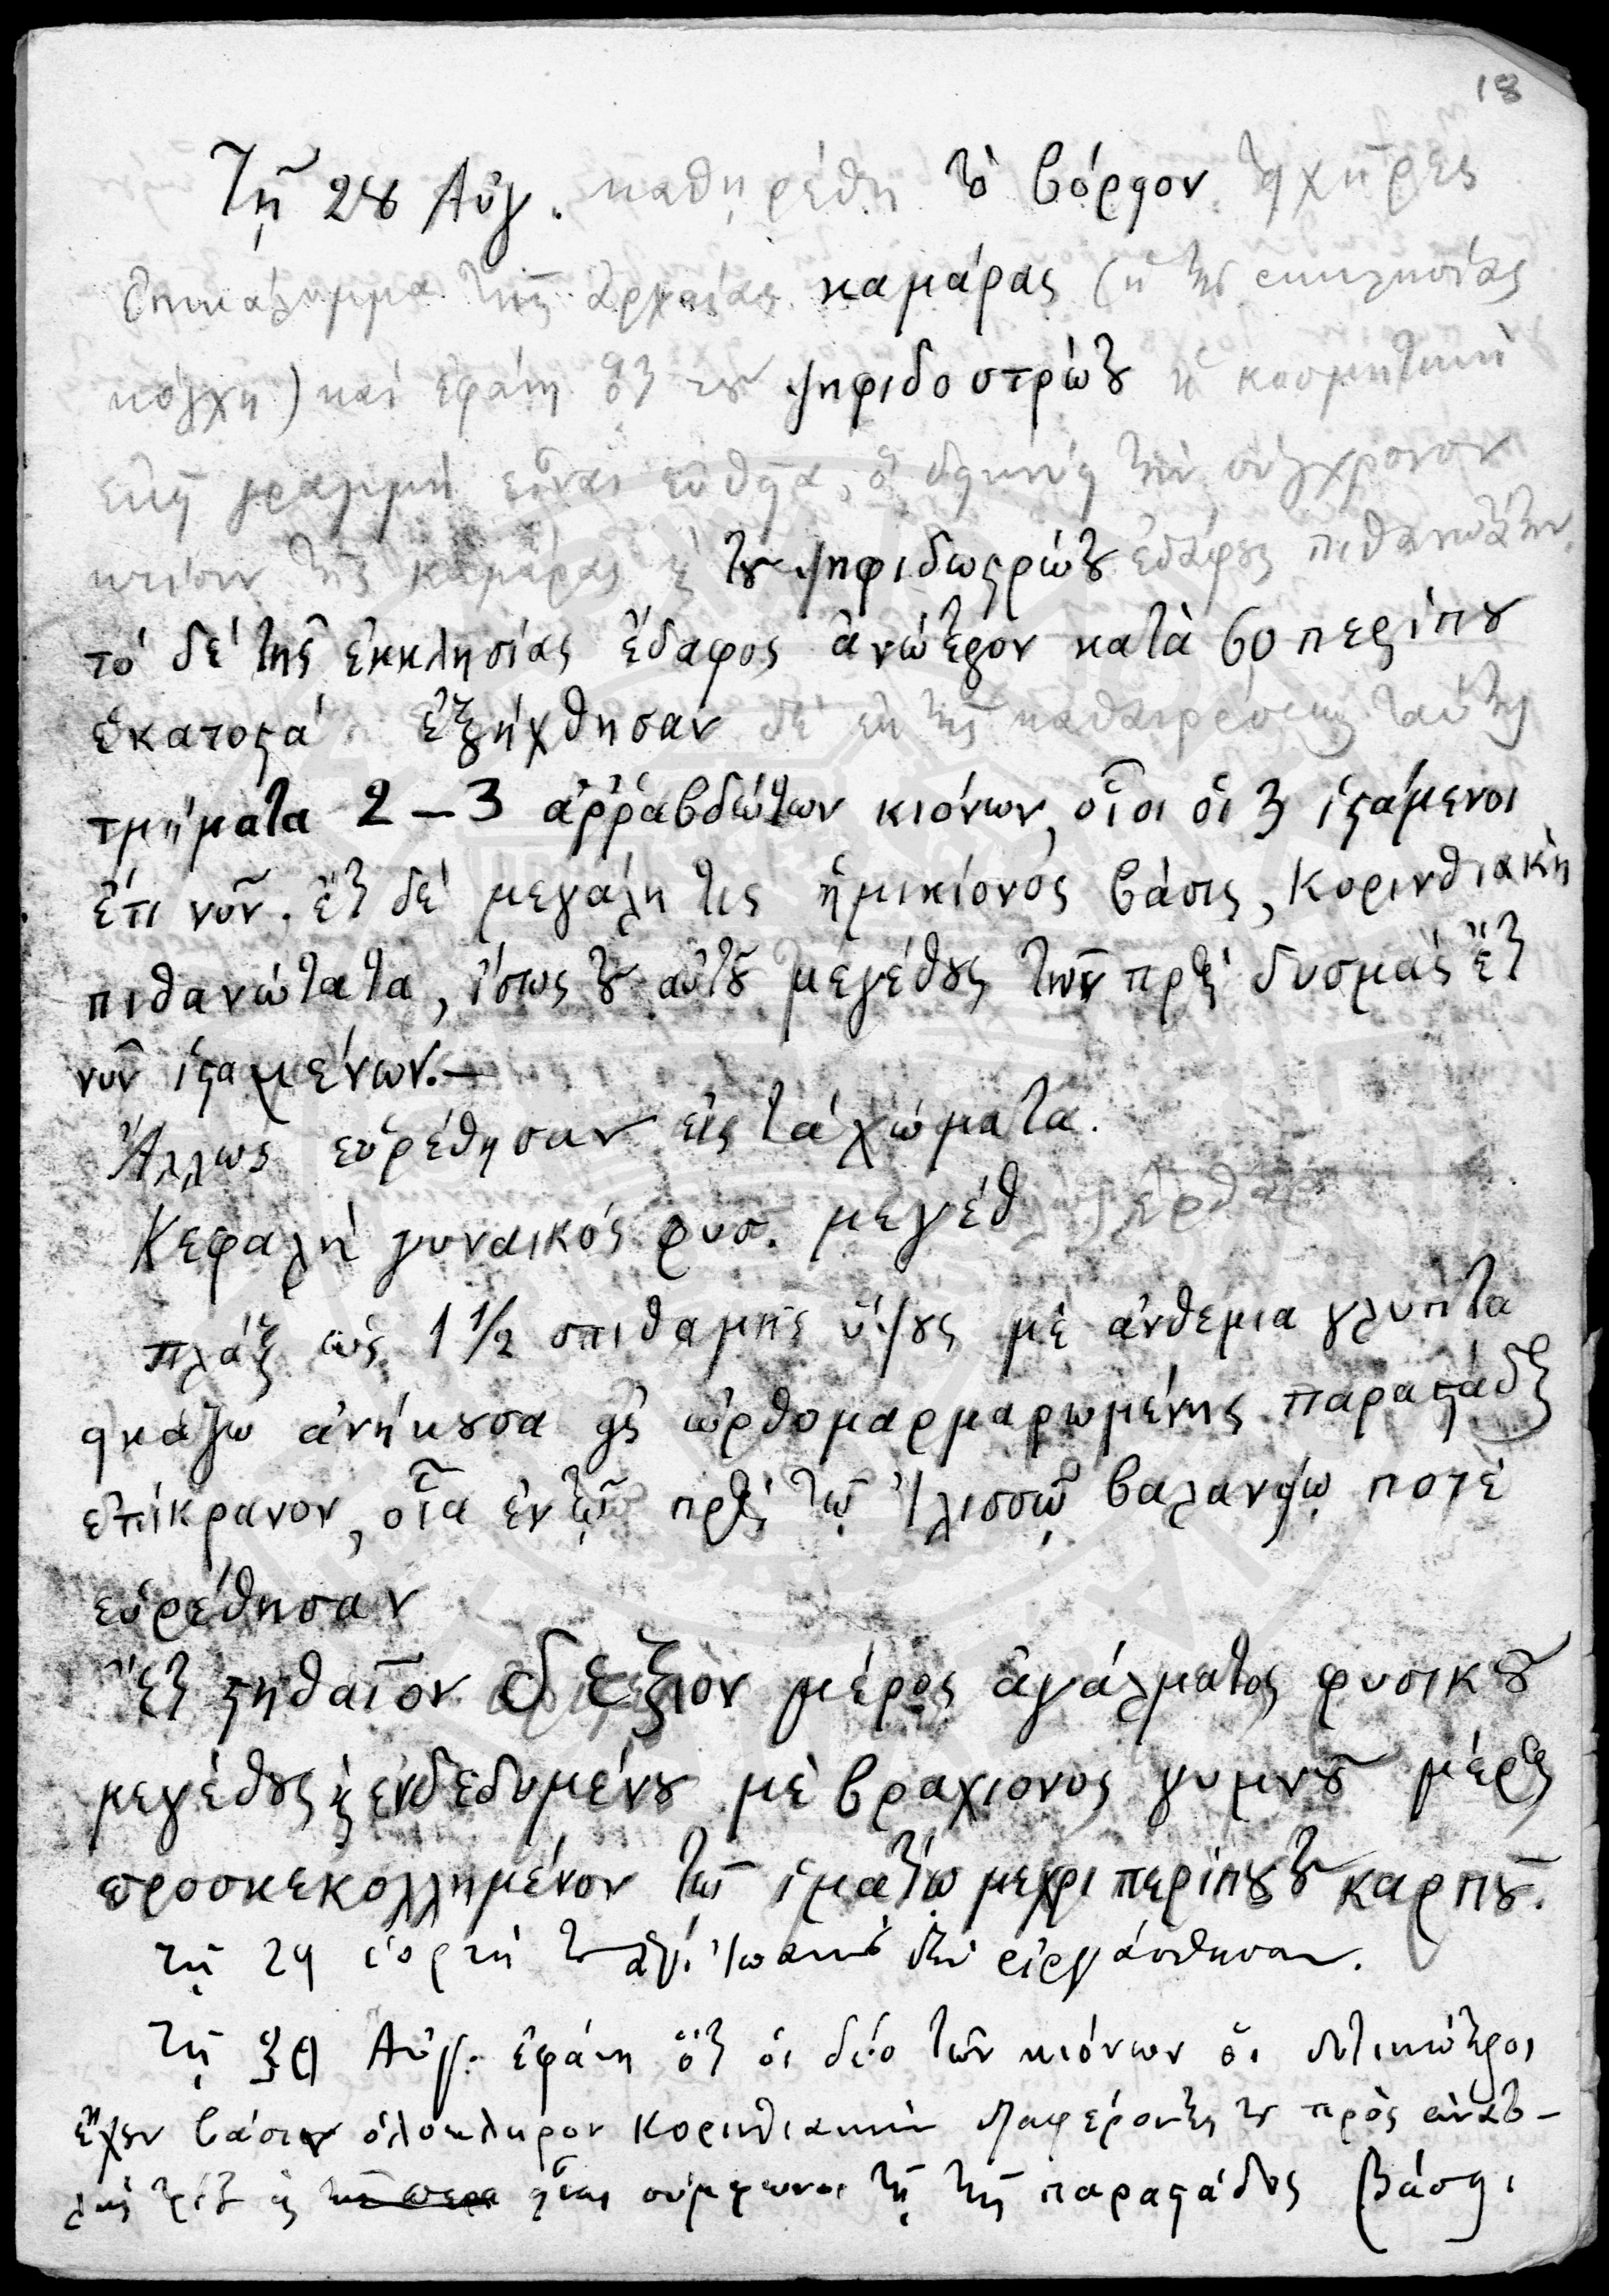 18
Τῇ 28 Αὐγ. καθῃρέθη τὸ βόρειον ἡμιχῆρες
ἐπικάλυμμα τῆς ἀρχαίας καμάρας (ἢ τῆς ἐκκλησίας
κόγχη) καὶ ἐφάνη ὅτι τοῦ ψηφιδοστρώτου ἡ κοσμητικὴ
ἐκεῖ γραμμὴ εἶναι εὐθεῖα, ὃ δεικνύει τὴν σύγχρονον
κτίσιν τῆς καμάρας καὶ τοῦ ψηφιδωστρώτου ἐδάφους πιθανωτάτην,
τὸ δὲ τῆς ἐκκλησίας ἔδαφος ἀνώτερον κατὰ 60 περίπου
ἑκατοστά ἐξήχθησαν δὲ ἐκ τῆς καθαιρέσεως ταύτης
τμήματα 2 – 3 ἀῤῥαβδώτων κιόνων, οἷοι οἱ 3 ἱστάμενοι
ἔτι νῦν. ἔτι δὲ μεγάλη τις ἡμικίονος βάσις, Κορινθιακὴ
πιθανώτατα, ἴσως τοῦ αὐτοῦ μεγέθους τῶν πρὸς δυσμὰς ἔτι
νῦν ἱσταμένων.—
Ἄλλως εὑρέθησαν εἰς τὰ χώματα.
Κεφαλὴ γυναικός φυσ. μεγέθ
πλάξ ὡς 1 1/2 σπιθαμῆς ὕψους μὲ ἀνθέμια γλυπτὰ
εἰκάζω ἀνήκουσα εἰς ὠρθομαρμαρωμένης παραστάδος
ἐπίκρανον, οἷα ἐν τῷ πρὸς τῷ Ἰλισσῷ βαλανείῳ ποτὲ
εὑρέθησαν
Ἔτι στηθαῖον δεξιὸν μέρος ἀγάλματος φυσικοῦ
μεγέθους καὶ ἐνδεδυμένου μὲ βραχίονος γυμνοῦ μέρος
προσκεκολλημένον τῷ ἱματίῳ μέχρι περίπου τοῦ καρποῦ.
τῇ 29 ἑορτὴ τοῦ ἁγ. Ἰωάννου δὲν εἰργάσθησαν.
τῇ 30 Αὐγ. ἐφάνη ὅτι οἱ δύο τῶν κιόνων οἱ δυτικώτεροι
ἔχουν βάσιν ὁλόκληρον κορινθιακὴν διαφέροντες τοῦ πρὸς ἀνατο-
λὰς τρίτου εἶναι σύμφωνοι τῇ τῆς παραστάδος βάσει